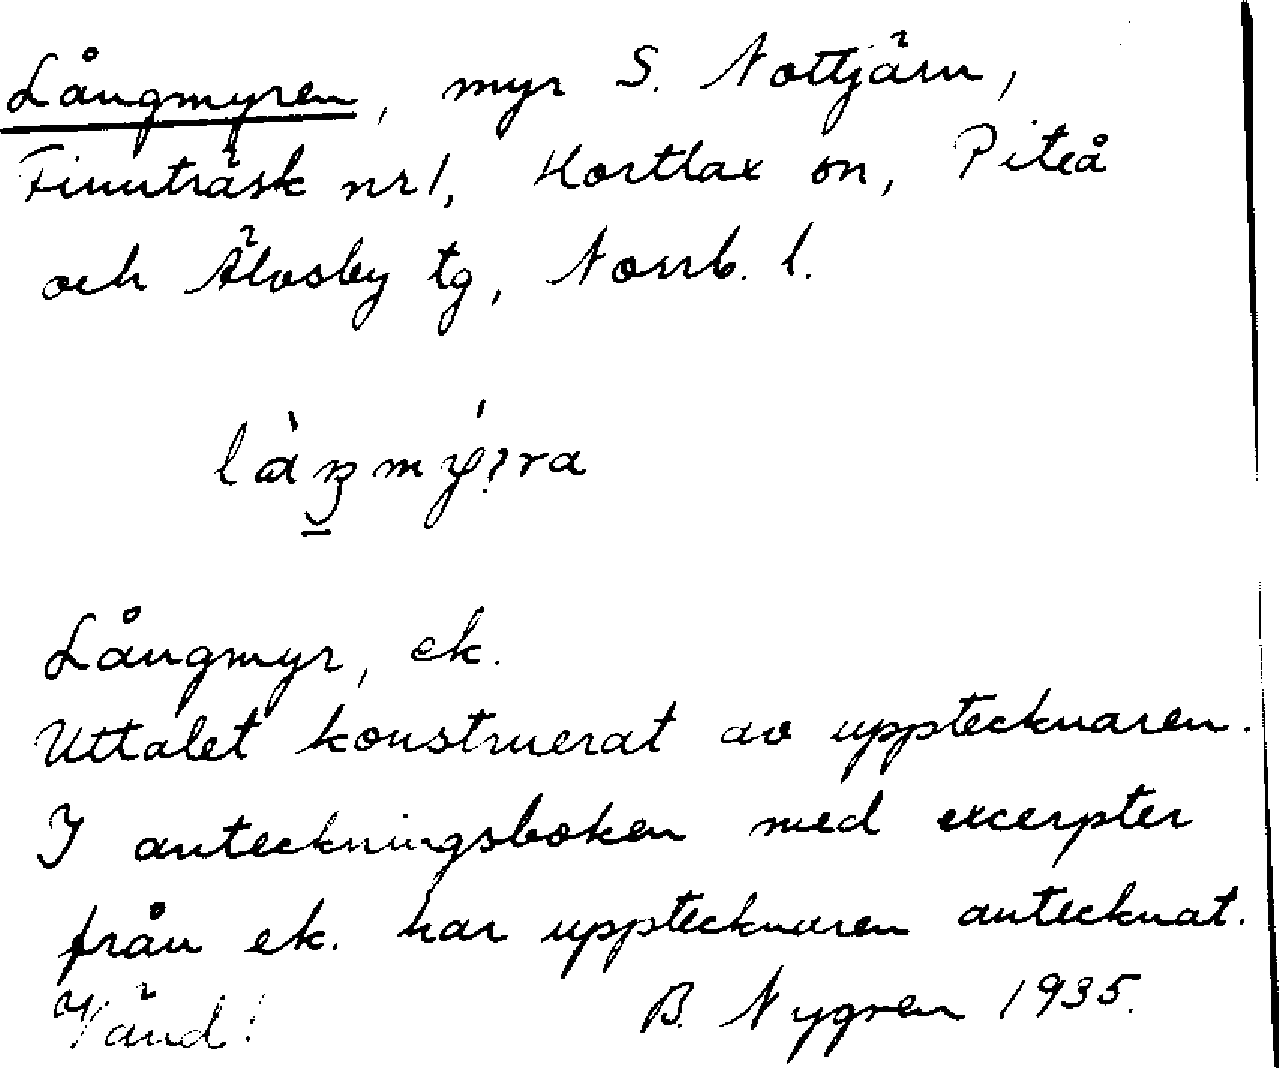 Långmyren, myr S. Nottjärn,
Finnträsk nr 1, Hortlax sn, Piteå
och Älvsby tg, Norrb. l.
Långmyr, ek.
Uttalet konstruerat av upptecknaren.
I anteckningsboken med excerpter
från ek. har upptecknaren antecknat.
Vänd! B. Nygren 1935.